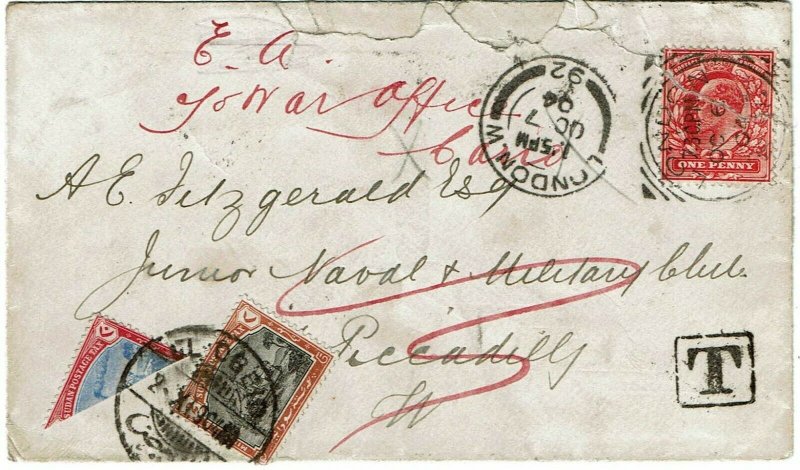 E. A.
To War Office
Cairo
LONDON.W
1.15PM
OC 7
04
92
ONE PENNY
A E Fitzgerald Esq
Junior Naval & Military Club
Piccadilly
W
SUDAN POSTAGE TAX
T